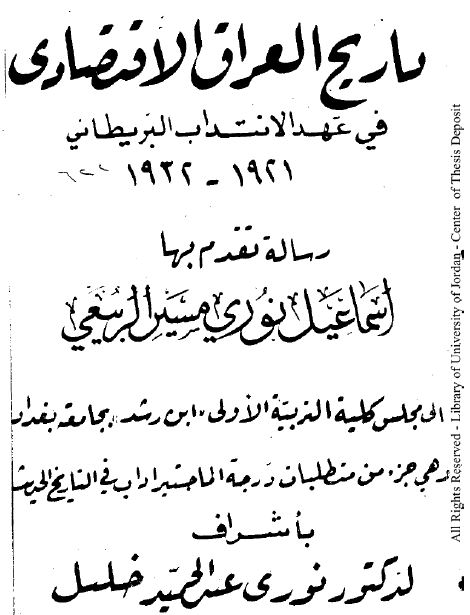 تاريخ العراق الاقتصادي
في عهد الانتداب البريطاني
١٩٢١ - ١٩٣٢
رسالة تقدم بها
اسماعيل نوري مسير الربيعي
الى مجلس كلية التربية الأولى "ابن رشد" بجامعة بغداد
وهي جزء من متطلبات درجة الماجستير اداب في التاريخ الحديث
بأشراف
لدكتور نوري عبد الحميد خليل
All Rights Reserved - Library of University of Jordan - Center of Thesis Deposit